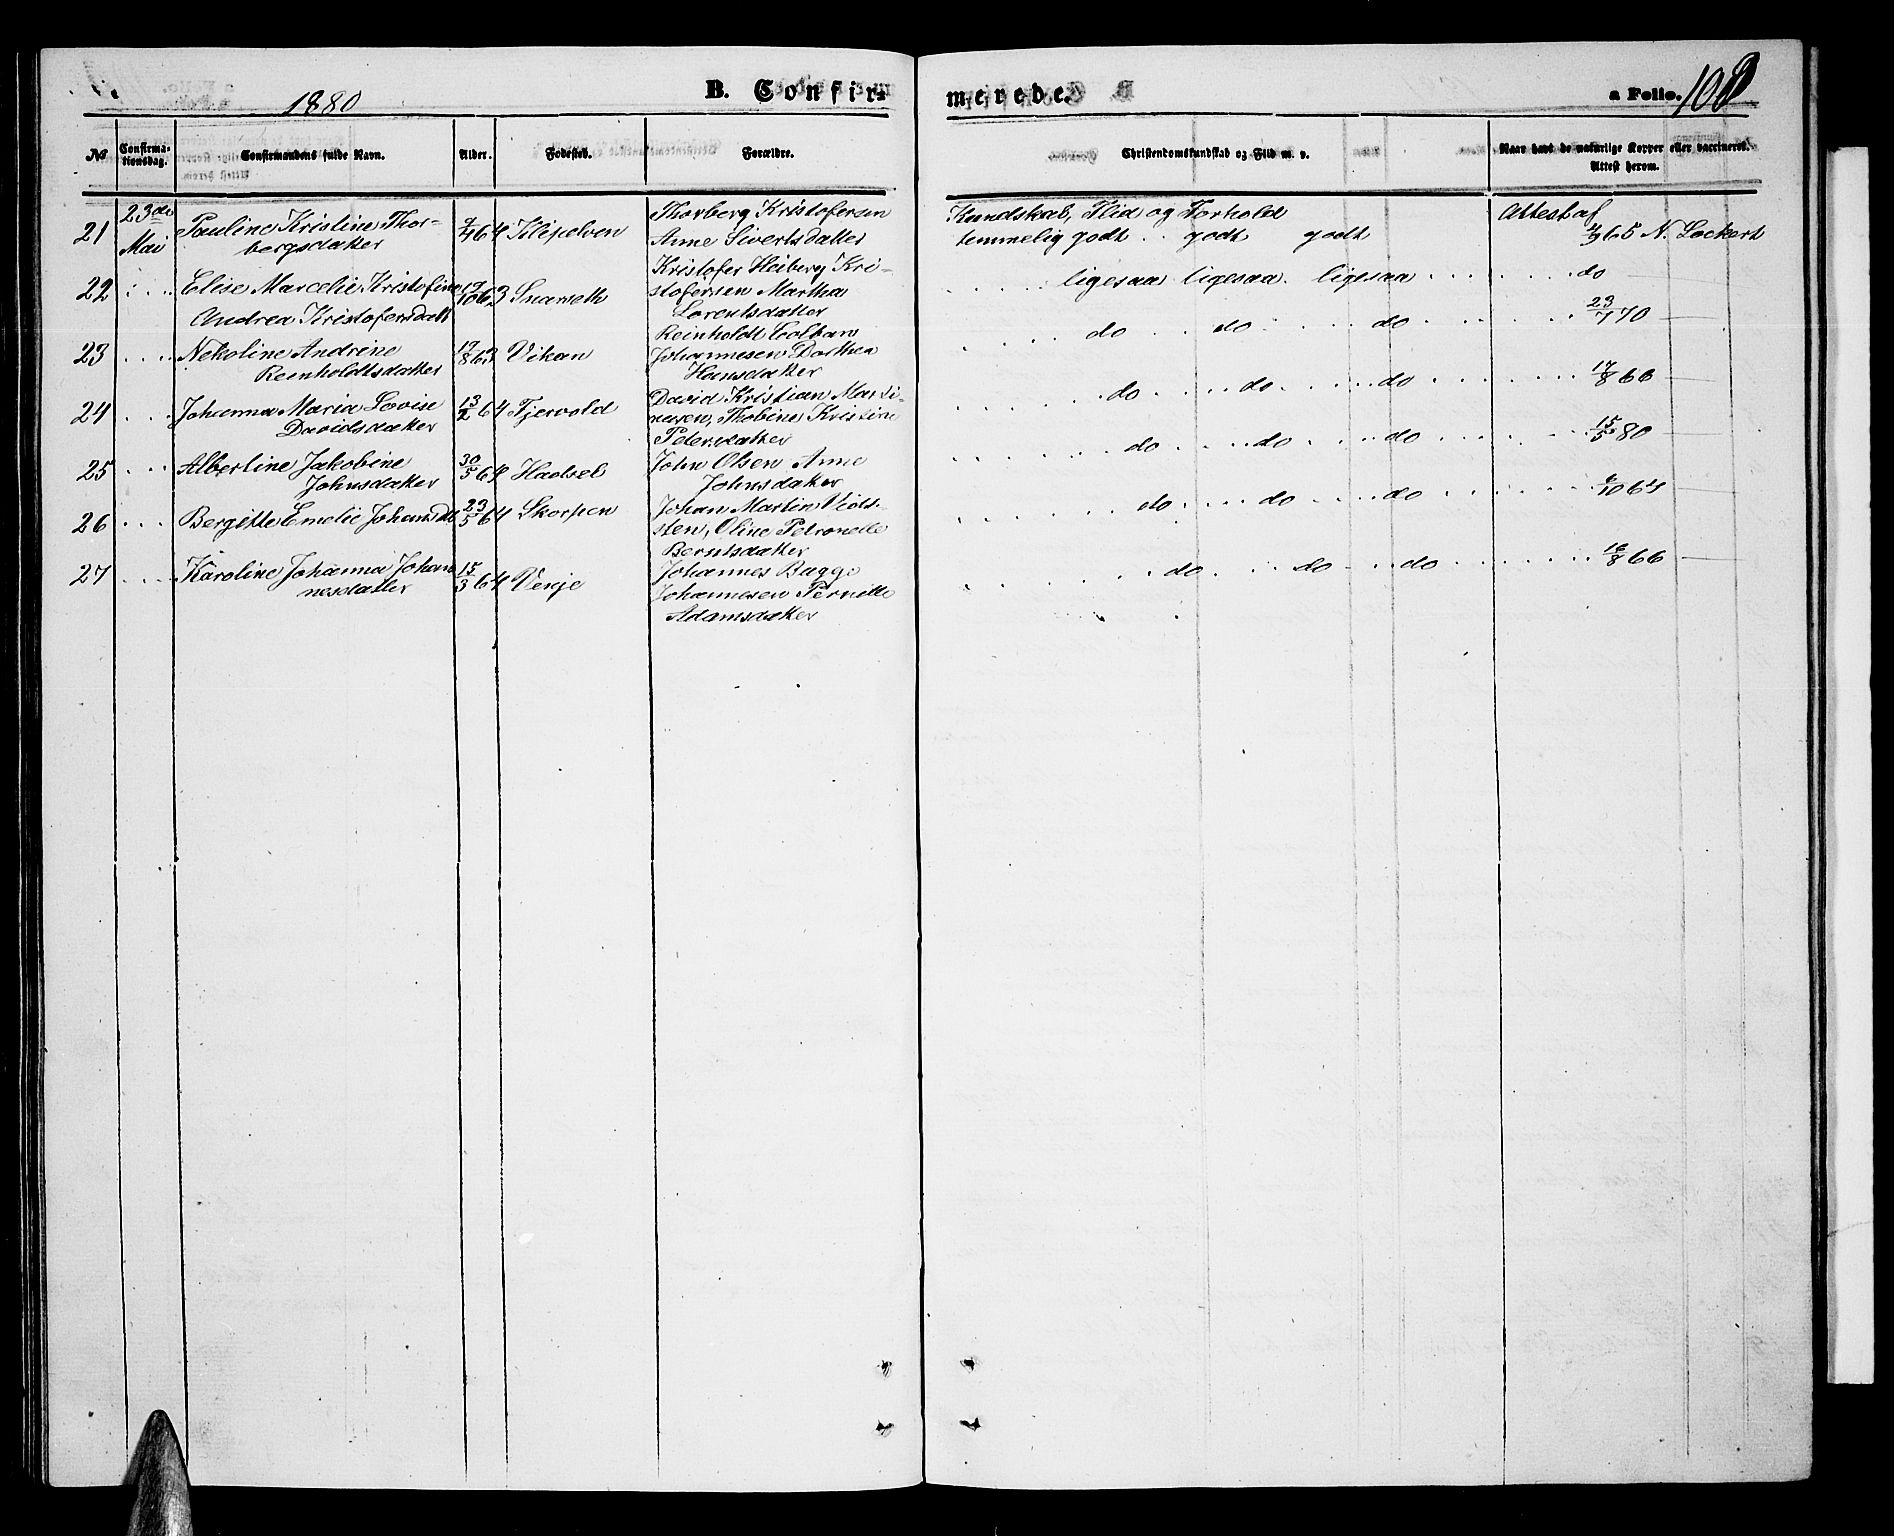 1880
B. Confir-
merede.
a Folio. 108
No
Confirma-
tionsdag.
Confirmandens fulde Navn.
Alder.
Fødested.
Forældre.
Christendomskundskab og Flid m. v.
Naar havt de naturlige Kopper eller vaccineret.
Attest herom.
21 23de Mai
Pauline Kristine Thor-
bergsdatter
64 Klipelven
Thorberg Kristofersen
Anne Sivertsdatter
Kundskab, Flid og Forhold
temmelig godt . . godt godt
Attest af
65 N. Lockert
22
Elise Marcelie Kristofine
Andrea Kristofersdatt
17/10 63 Snarseth
Kristofer Heiberg Kri-
stofersen Martha
Lorentsdatter
ligesaa ligesaa ligesaa do
23/7 70
23
Nekoline Andrine
Reinholdtsdatter
17/8 63 Vikan
Reinholdt Coldtan
Johannesen Dorthea
Hansdatter
do do do
17/8 66
24
Johanna Maria Lovise
Davidsdatter
13/2 64 Fjervold
David Kristian Marti-
nusen, Thobine Kristine
Petersdatter
do do do
15/5 80
25
Albertine Jakobine
Johnsdatter
30/5 64 Hadsel
John Olsen Anne
Johnsdatter
do do do
26
Bergitte Emelie Johansdt
23/5 64 Skorpen
Johan Martin
Oline Petronelle
Berntsdatter
do do do
27
Karoline Johanna Johan
nesdatter
15/3 64 Venje
Johannes Bagge
Johannesen Pernille
Adamsdatter
do do do
16/8 66